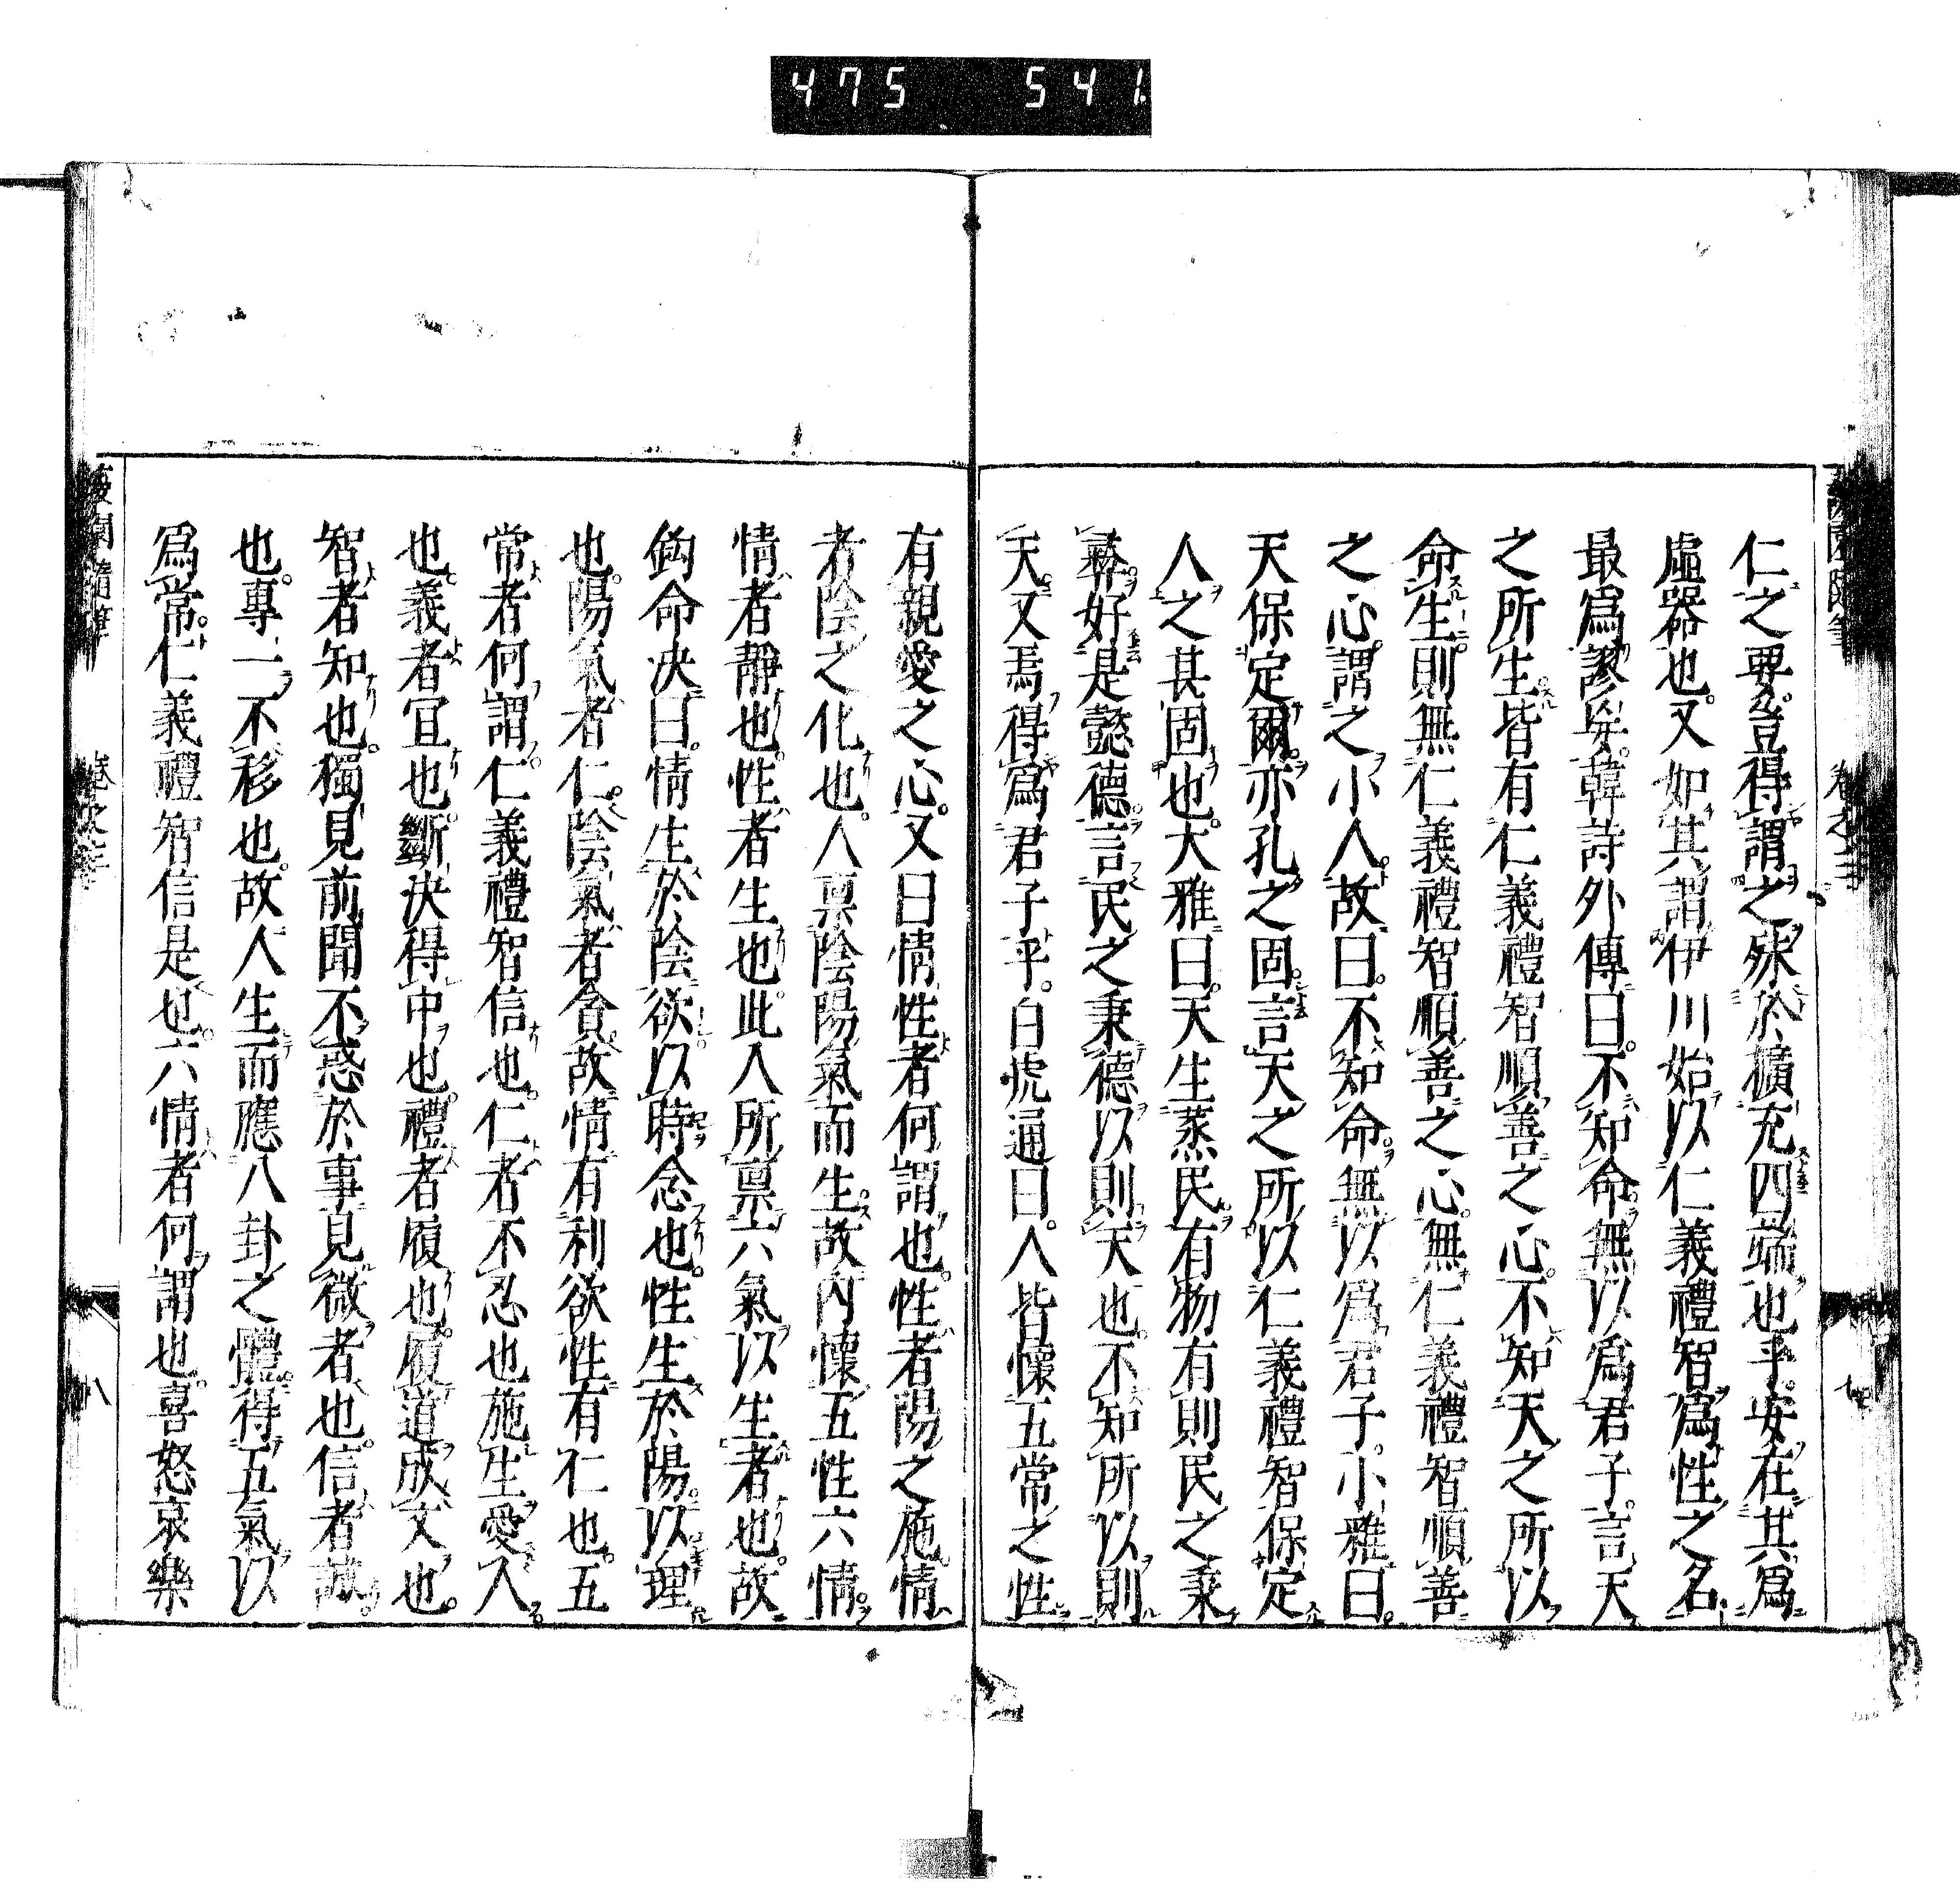 475 541
仁之要。豈得謂之殊於擴充四端也乎。安在其爲
虛器也。又如其謂伊川始以仁義禮智爲性之名
最爲謬矣。韓詩外傳曰。不知命。無以爲君子。言天
之所生。皆有仁義禮智順善之心。不知天之所以
命生。則無仁義禮智順善之心。無仁義禮智順善
之心。謂之小人。故曰。不知命。無以爲君子。小雅曰。
天保定爾。亦孔之固。言天之所以仁義禮智保定
人之甚固也。大雅曰。天生蒸民。有物有則民之秉
彝。好是懿德。言民之秉德以則天也。不知所以則
天。又焉得爲君子乎。白虎通曰。人皆懷五常之性
有親愛之心。又曰情性者何謂也。性者陽之施。情
者陰之化也。人禀陰陽氣而生。故內懷五性六情。
情者靜也。性者生也。此人所禀六氣以生者也。故
鉤命决曰。情生於陰。欲以時念也。性生於陽。以理
也。陽氣者仁。陰氣者貪。故情有利欲性有仁也。五
常者何謂。仁義禮智信也。仁者不忍也施生愛人
也。義者宜也斷決得中也。禮者履也。履道成文也。
智者知也。獨見前聞不惑於事見微者也。信者誠。
也。專一不移也。故人生而應八卦之體。得五氣以
爲常。仁義禮智信是也。六情者何謂也。喜怒哀樂
園隨筆
卷之三
八